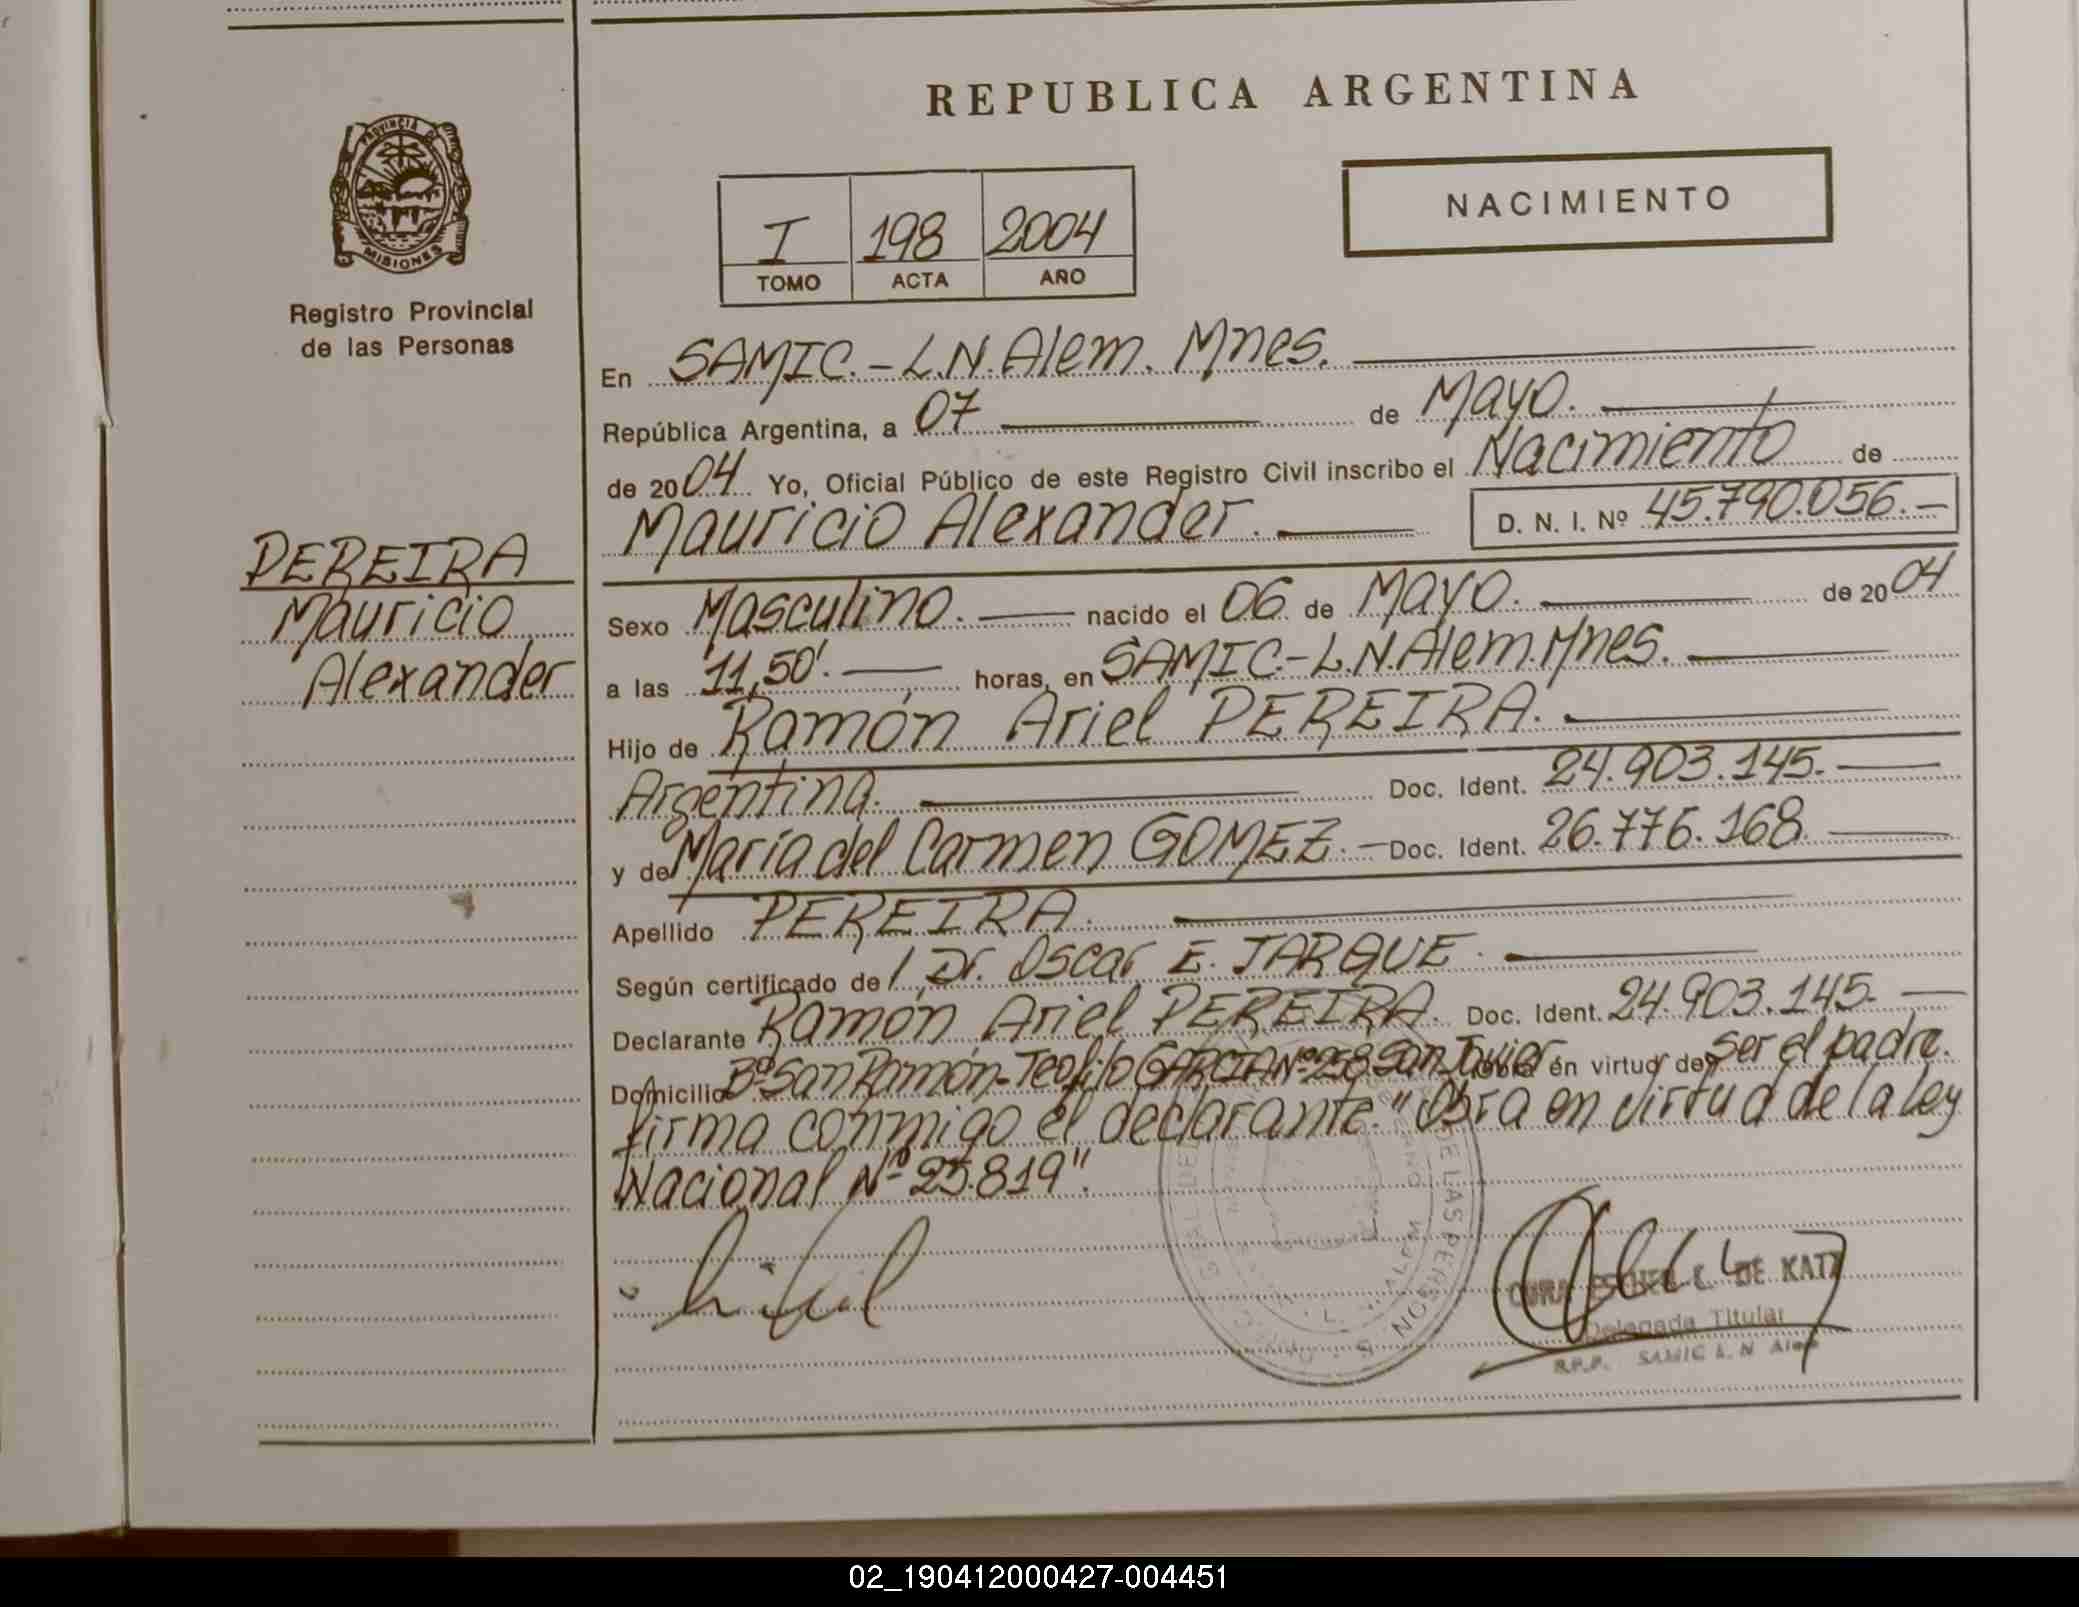 REPUBLICA ARGENTINA
NACIMIENTO
PROVINCIA DE
MISIONES
Registro Provincial
de las Personas
I 198 2004
TOMO ACTA AÑO
En SAMIC.-L.N.Alem. Mnes.
República Argentina, a 07 de Mayo.
de 2004 Yo, Oficial Público de este Registro Civil inscribo el Nacimiento de
Mauricio Alexander. D. N. I. Nº 45.790.056.-
PEREIRA
Mauricio
Alexander
Sexo Masculino. nacido el 06 de Mayo. de 2004
a las 11,50'. horas, en SAMIC.-L.N.Alem.Mnes.
Hijo de Ramón Ariel PEREIRA.
Argentina. Doc. Ident. 24.903.145.
y de María del Carmen GOMEZ.- Doc. Ident. 26.776.168.
Apellido PEREIRA.
Según certificado de Dr. Oscar E. JARQUE.
Declarante Ramón Ariel PEREIRA. Doc. Ident. 24.903.145.
Domicilio Bº San Ramón-Teofilo GARCIA Nº 258 San Javier en virtud de ser el padre.
firma conmigo el declarante." Obra en virtud de la ley
Nacional Nº 25.819".
DE LAS PERSON
ESTHER L. DE KATZ
Delegada Titular
R.P.P. SAMIC L. N Alem
02_190412000427-004451